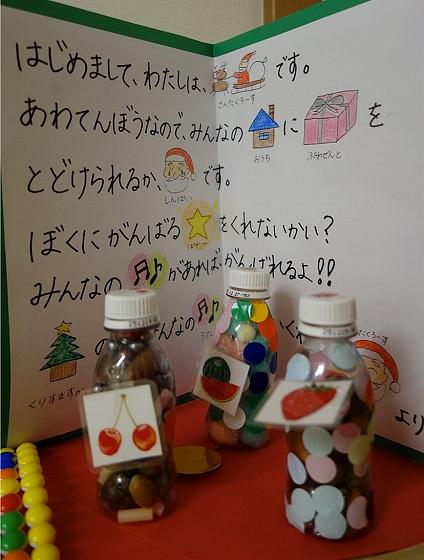 はじめまして、わたしは、
さんたくろーす
です。
あわてんぼうなので、みんなの
おうち
に
ぷれぜんと
を
とどけられるか、
しんぱい
です。
ぼくにがんばる
ぱわー
をくれないかい？
みんなの
があれば、がんばれるよ!!
くりすますか
の
んなの
うた
くれ
たくろーす
より